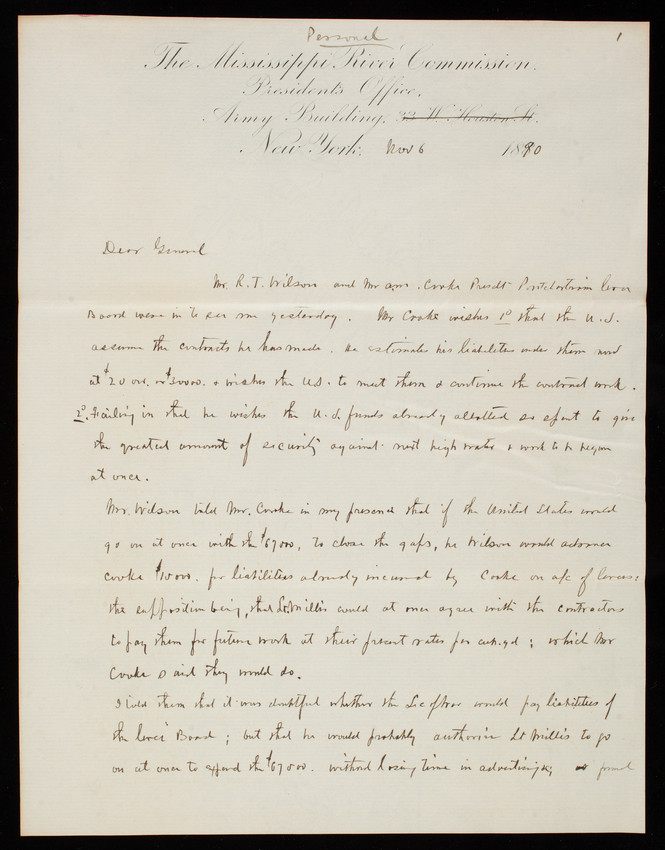 Personal
1
The Mississippi River Commission.
President's Office,
Army Building, 33 W. Houston St.
New York, Nov 6 1890
Dear General
Mr. R. T. Wilson and Mr Cooke Presdt Pontchartrain levee
Board were in to see me yesterday. Mr Cooke wishes 1º that the U.S.
assume the contracts he has made. He estimates his liabilities under them now
at $20 000. or $30000. & wishes the U.S. to meet them & continue the contract work.
2º. Failing in that he wishes the U.S. funds already allotted so spent to give
the greatest amount of security against next high water & work to be begun
at once.
Mr. Wilson told Mr. Cooke in my presence that if the United States would
go on at once with the $67000, to close the gaps, he Wilson would advance
Cooke $10000. for liabilities already incurred by Cooke on a/c of levees:
the supposition being, that Lt Millis could at once agree with the contractors
to pay them for future work at their present rates per cub. yd; which Mr
Cooke said they would do.
I told them that it was doubtful whether the Sec of War would pay liabilities of
the levee Board; but that he would probably authorize Lt Millis to go
on at once to expend the $67000. without losing time in advertising